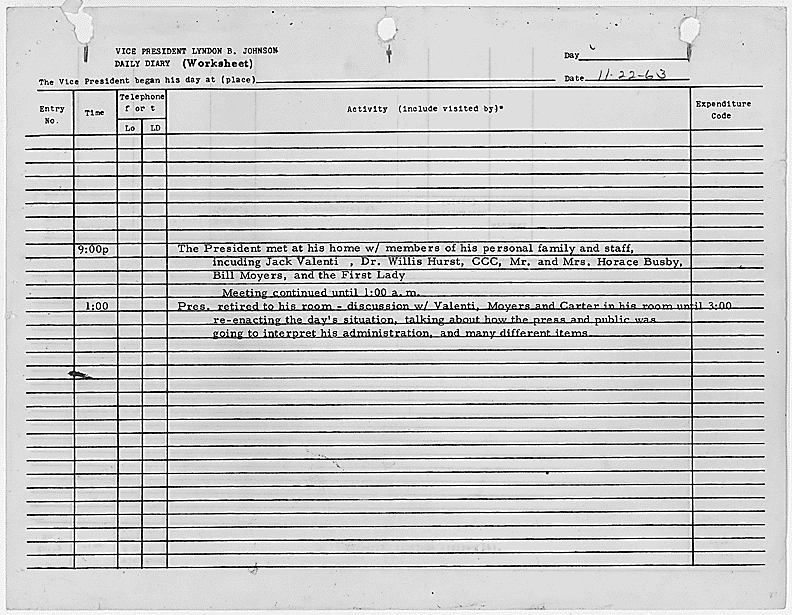 VICE PRESIDENT LYNDON B. JOHNSON
DAILY DIARY (Worksheet)
Day
The Vice President began his day at (place)
Date 11-22-63
Entry No.
Time
Telephone f or t
Lo LD
Activity (include visited by)*
Expenditure Code
9:00p The President met at his home w/ members of his personal family and staff,
incuding Jack Valenti , Dr. Willis Hurst, CCC, Mr. and Mrs. Horace Busby,
Bill Moyers, and the First Lady
Meeting continued until 1:00 a.m.
1:00 Pres. retired to his room - discussion w/ Valenti, Moyers and Carter in his room until 3:00
re-enacting the day's situation, talking about how the press and public was
going to interpret his administration, and many different items